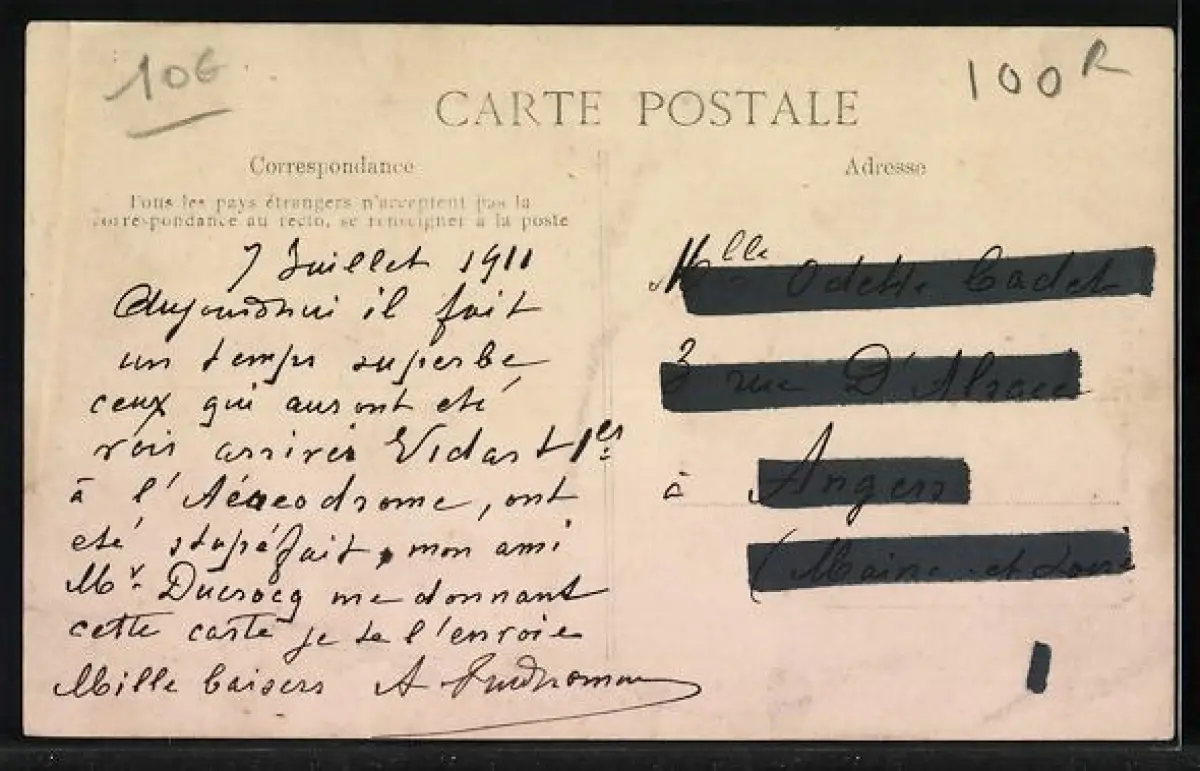 106
100 R
CARTE POSTALE
Correspondance
Tous les pays étrangers n'acceptent pas la
correspondance au recto, se renseigner à la poste
Adresse
7 Juillet 1911
Aujourdhui il fait
un temps superbe
ceux qui auront eté
vois arriver Vidart 1er
à l'Aéreodrome, ont
eté stupéfait, mon ami
Mr. Ducrocq me donnant
cette carte je te l'envoie
Mille baisers A
Mlle Odette Cadet
3 rue D'Alsace
à Angers
(Maine et Loire